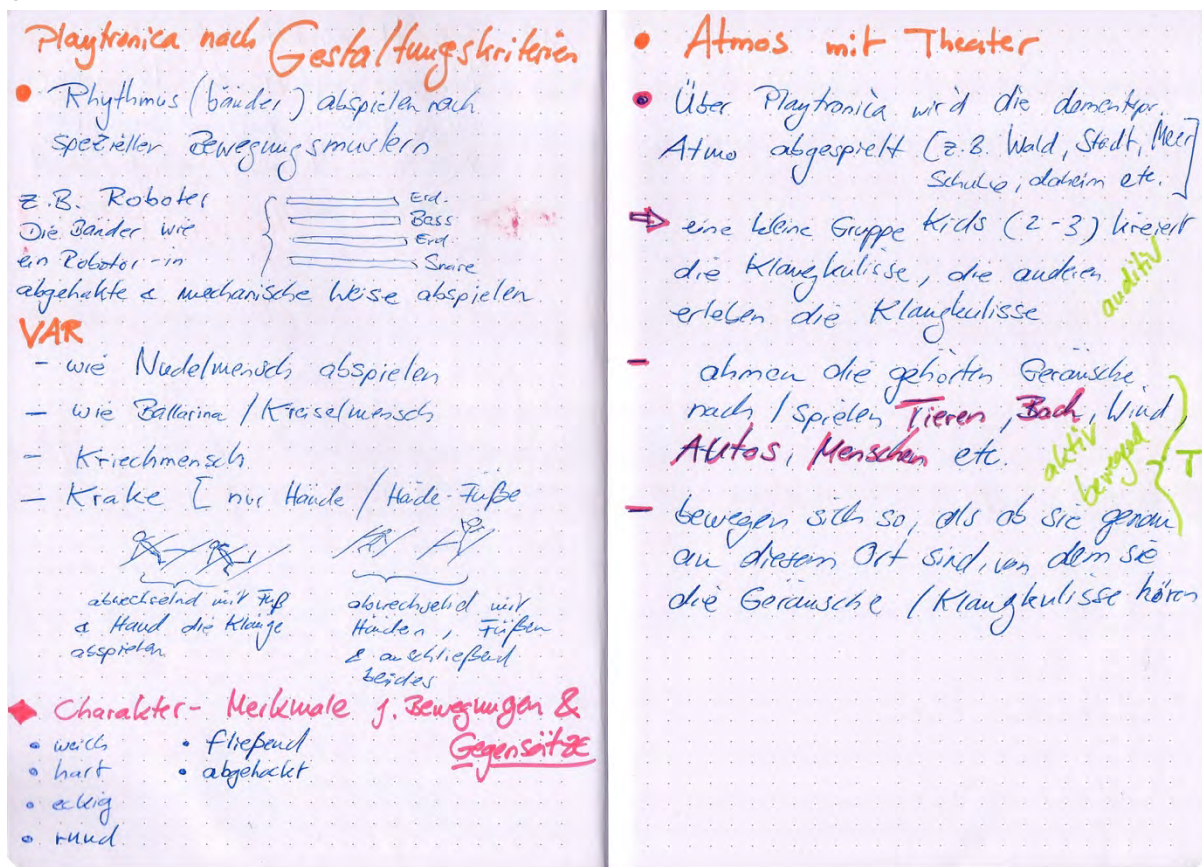 Playtronica nach Gestaltungskriterien
• Rhythmus (bänder) abspielen nach
spezieller Bewegungsmustern
z.B. Roboter
Die Bänder wie
ein Robotor - in
abgehakte & mechanische Weise abspielen
Erd.
Bass
Erd.
Snare
VAR
- wie Nudelmensch abspielen
- wie Ballarina / Kreiselmensch
- Kriechmensch
- Krake [ nur Hände / Häde-Füße
abwechselnd mit Fuß
& Hand die Klänge
abspielen
abwechselnd mit
Händen, Füßen
& anschließend
beides
Charakter- Merkmale j. Bewegungen &
Gegensätze
• weich
• hart
• eckig
• rund
• fließend
• abgehackt
• Atmos mit Theater
• Über Playtronica wird die
Atmo abgespielt [z.B. Wald, Stadt, Meer]
Schule, daheim etc.
⇒ eine kleine Gruppe Kids (2-3) kreiert
die Klangkulisse, die anderen
erleben die Klangkulisse
auditiv
- ahmen die gehörten Geräusche
nach / spielen Tieren, Bach, Wind,
Autos, Menschen etc.
aktiv
bewegend
T
- bewegen sich so, als ob sie genau
an diesem Ort sind, von dem sie
die Geräusche / Klangkulisse hören